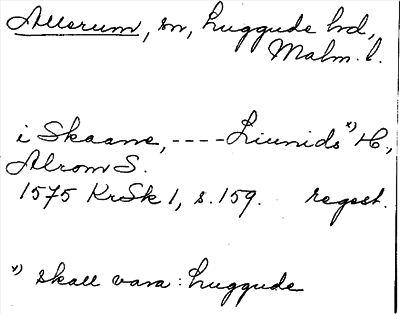 Allerum, sn, Luggude hd,
Malm. l.
i Skaane, ---- Liunids x) H,
Alrom S.
1575 KrSk 1, s. 159. regest.
x) skall vara: Luggude